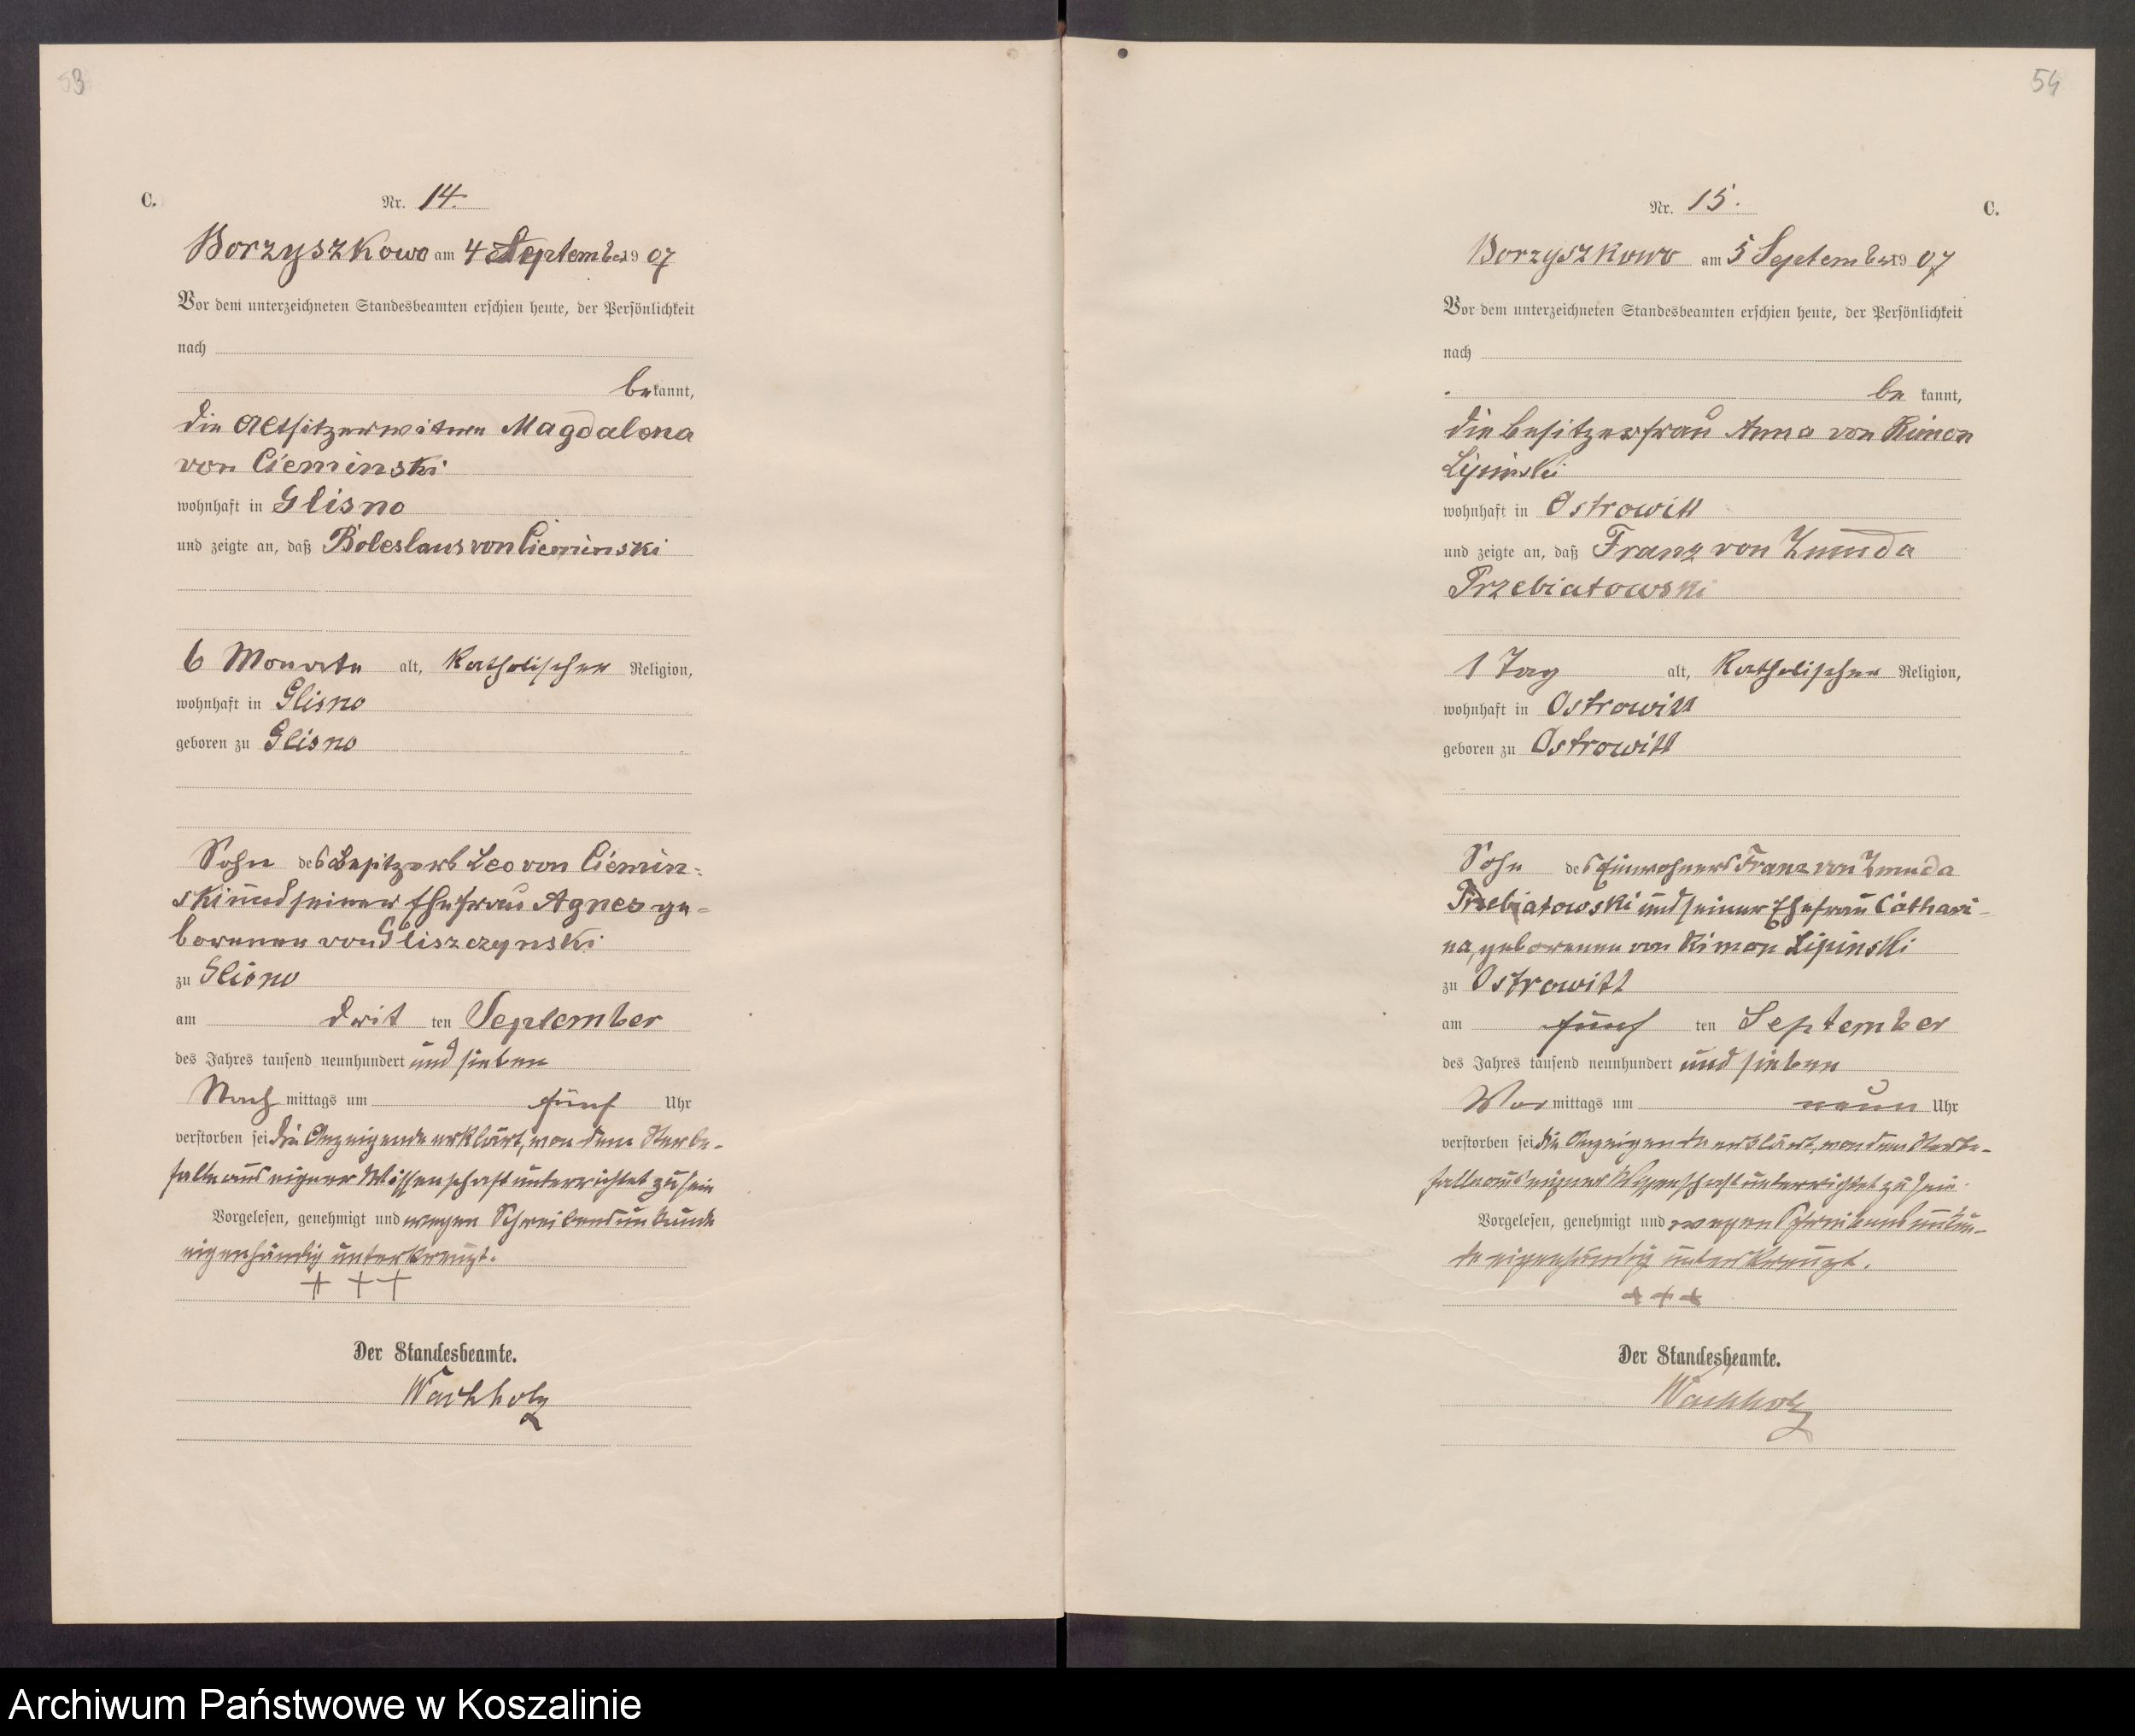 53
C.
Nr. 14.
Borzyszkowo am 4 September 1907
Vor dem unterzeichneten Standesbeamten erschien heute, der Persönlichkeit
nach
bekannt,
die Altsitzerwitwe Magdalena
von Cieminski
wohnhaft in Glisno
und zeigte an, daß Boleslaus von Cieminski
6 Monate alt, katholischer Religion,
wohnhaft in Glisno
geboren zu Glisno
Sohn des Besitzers Leo von Ciemin-
ski und seiner Ehefrau Agnes ge-
borenen von Gliszczynski
zu Glisno
am drit ten September
des Jahres tausend neunhundert und sieben
Nach mittags um fünf Uhr
verstorben sei die Anzeigende erklärt, von dem Sterbe-
falle aus eigener Wissenschaft unterrichtet zu sein
Vorgelesen, genehmigt und wegen Schreibensunkunde
eigenhändig unterkreuzt.
+ + +
Der Standesbeamte.
Wachholz
54
Nr. 15.
C.
Borzyszkowo am 5 September 1907
Vor dem unterzeichneten Standesbeamten erschien heute, der Persönlichkeit
nach
be kannt,
die Besitzerfrau Anna von Kimon
Lipinski
wohnhaft in Ostrowitt
und zeigte an, daß Franz von Zmuda
Przebiatowski
1 Tag alt, katholischer Religion,
wohnhaft in Ostrowitt
geboren zu Ostrowitt
Sohn des Einwohners Franz von Zmuda
Trzebiatowski und seiner Ehefrau Cathari-
na, geborenen von Kimon Lipinski
zu Ostrowitt
am fünf ten September
des Jahres tausend neunhundert und sieben
Vor mittags um neun Uhr
verstorben sei die Anzeigende erklärt, von dem Sterbe-
falle aus eigener Wissenschaft unterrichtet zu sein.
Vorgelesen, genehmigt und wegen Schreibensunkun-
de eigenhändig unterkreuzt.
+ + +
Der Standesbeamte.
Wachholz
Archiwum Państwowe w Koszalinie